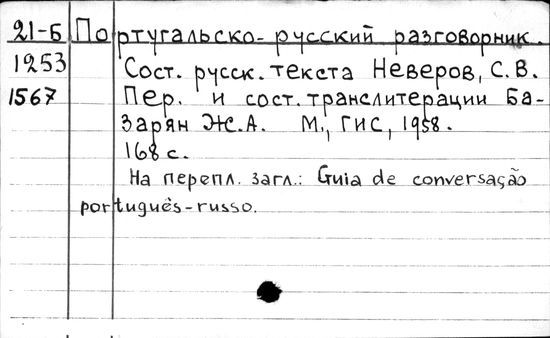 21-Б Португальско-русский разговорник.
1253 Сост. русск. текста Неверов, С.В.
1567 Пер. и сост. транслитерации Ба-
зарян Ж.А. М., ГИС, 1958.
168 с.
На перепл. загл.: Guia de conversação
português-russo.